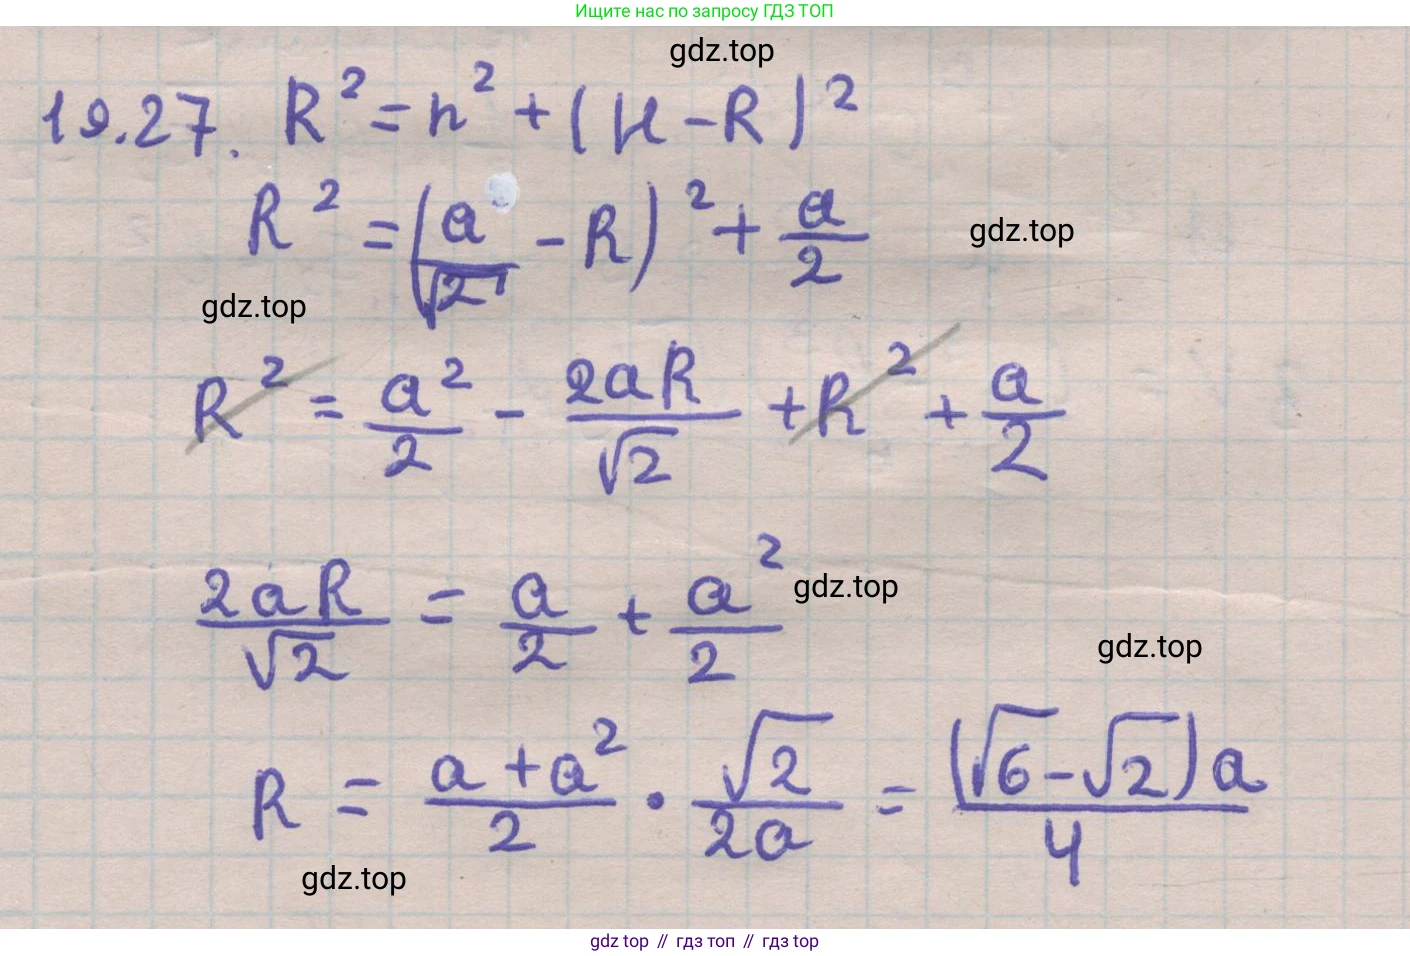 Ищите нас по запросу ГДЗ ТОП
gdz.top
19.27. R² = h² + (H - R)²
R² = (a/√2 - R)² + a/2
gdz.top
gdz.top
R² = a²/2 - 2aR/√2 + R² + a/2
2aR/√2 = a/2 + a²/2
gdz.top
gdz.top
R = (a + a²)/2 · √2/2a = (√6 - √2)a/4
gdz.top
gdz top // гдз топ // гдз top